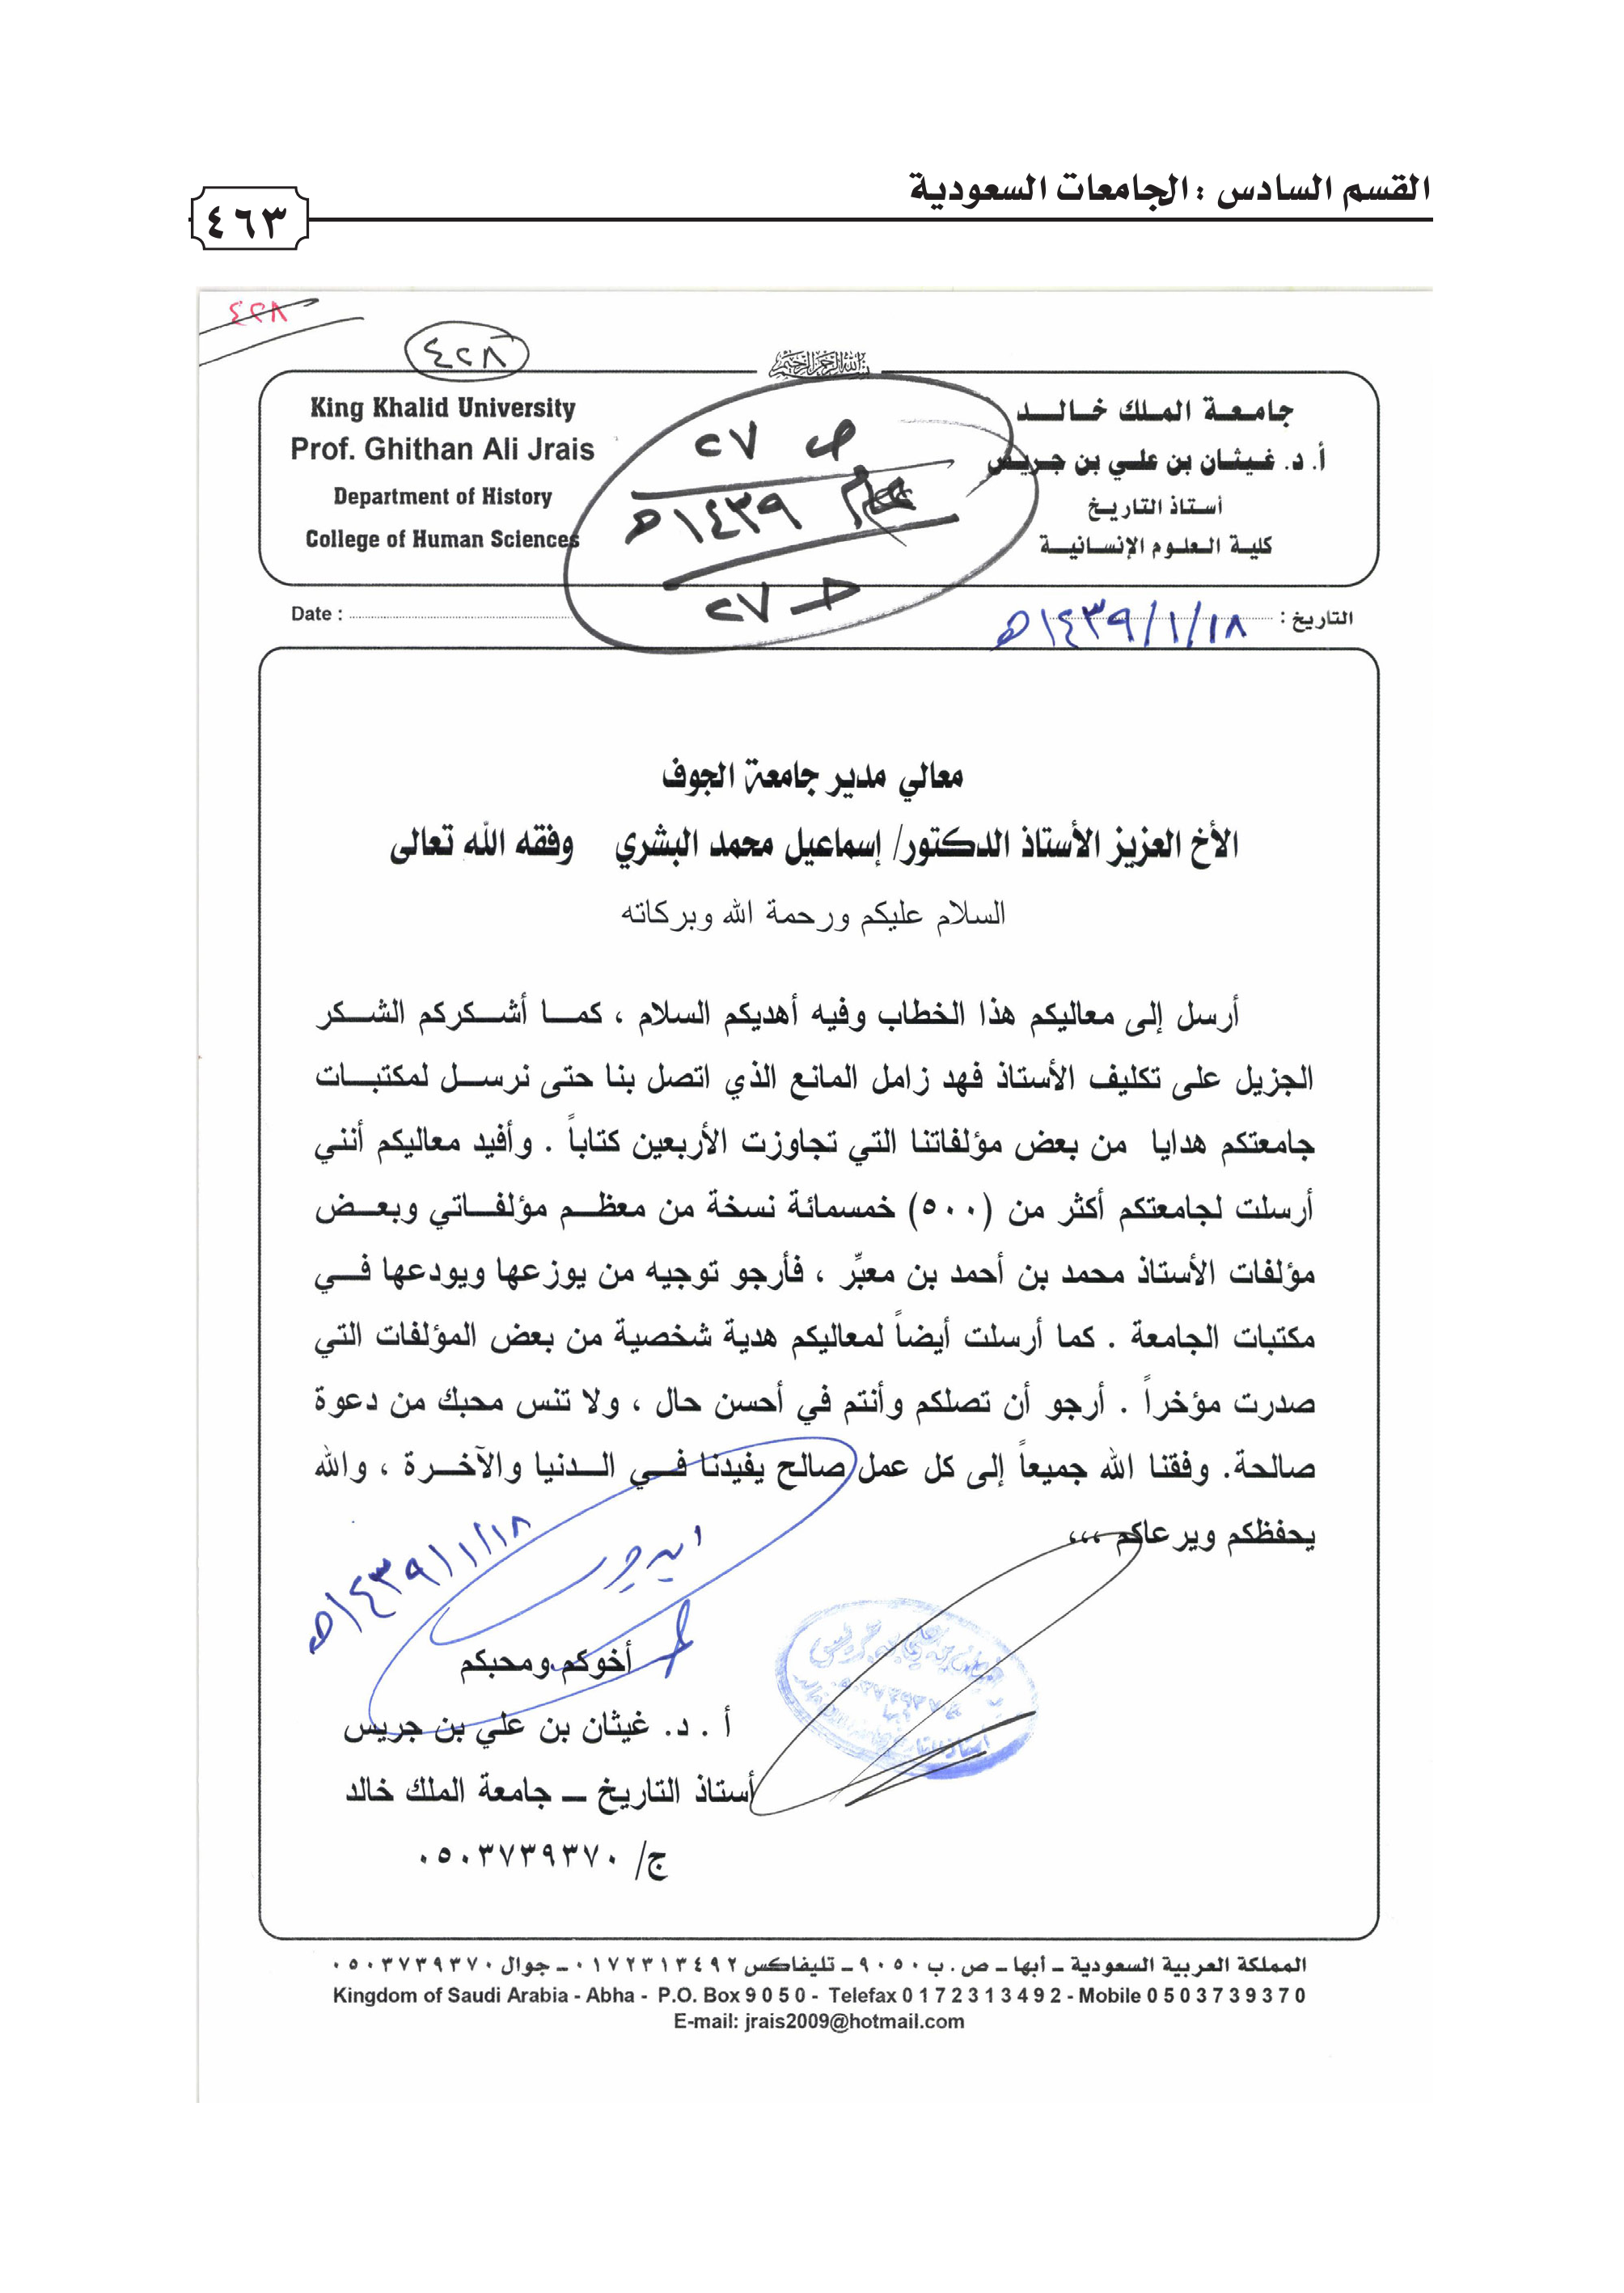 القسم السادس : الجامعات السعودية
٤٦٣
٤٢٨
٤٢٨
بسم الله الرحمن الرحيم
جامعة الملك خالد
أ. د. غيثان بن علي بن جريس
أستاذ التاريخ
كلية العلوم الإنسانية
King Khalid University
Prof. Ghithan Ali Jrais
Department of History
College of Human Sciences
ص ٢٧
عام ١٤٣٩هـ
حـ ٢٧
التاريخ : ١٤٣٩/١/١٨هـ
Date :
معالي مدير جامعة الجوف
الأخ العزيز الأستاذ الدكتور/ إسماعيل محمد البشري وفقه الله تعالى
السلام عليكم ورحمة الله وبركاته
أرسل إلى معاليكم هذا الخطاب وفيه أهديكم السلام ، كما أشكركم الشكر
الجزيل على تكليف الأستاذ فهد زامل المانع الذي اتصل بنا حتى نرسل لمكتبات
جامعتكم هدايا من بعض مؤلفاتنا التي تجاوزت الأربعين كتاباً . وأفيد معاليكم أنني
أرسلت لجامعتكم أكثر من (٥٠٠) خمسمائة نسخة من معظم مؤلفاتي وبعض
مؤلفات الأستاذ محمد بن أحمد بن معبِّر ، فأرجو توجيه من يوزعها ويودعها في
مكتبات الجامعة . كما أرسلت أيضاً لمعاليكم هدية شخصية من بعض المؤلفات التي
صدرت مؤخراً . أرجو أن تصلكم وأنتم في أحسن حال ، ولا تنس محبك من دعوة
صالحة. وفقنا الله جميعاً إلى كل عمل صالح يفيدنا في الدنيا والآخرة ، والله
يحفظكم ويرعاكم ،،،
١٤٣٩/١/١٨هـ
أخوكم ومحبكم
أ . د. غيثان بن علي بن جريس
أستاذ التاريخ ــ جامعة الملك خالد
ج/ ٠٥٠٣٧٣٩٣٧٠
المملكة العربية السعودية ـ أبها ـ ص. ب ٩٠٥٠ ـ تليفاكس ٠١٧٢٣١٣٤٩٢ ـ جوال ٠٥٠٣٧٣٩٣٧٠
Kingdom of Saudi Arabia - Abha - P.O. Box 9 0 5 0 - Telefax 0 1 7 2 3 1 3 4 9 2 - Mobile 0 5 0 3 7 3 9 3 7 0
E-mail: jrais2009@hotmail.com